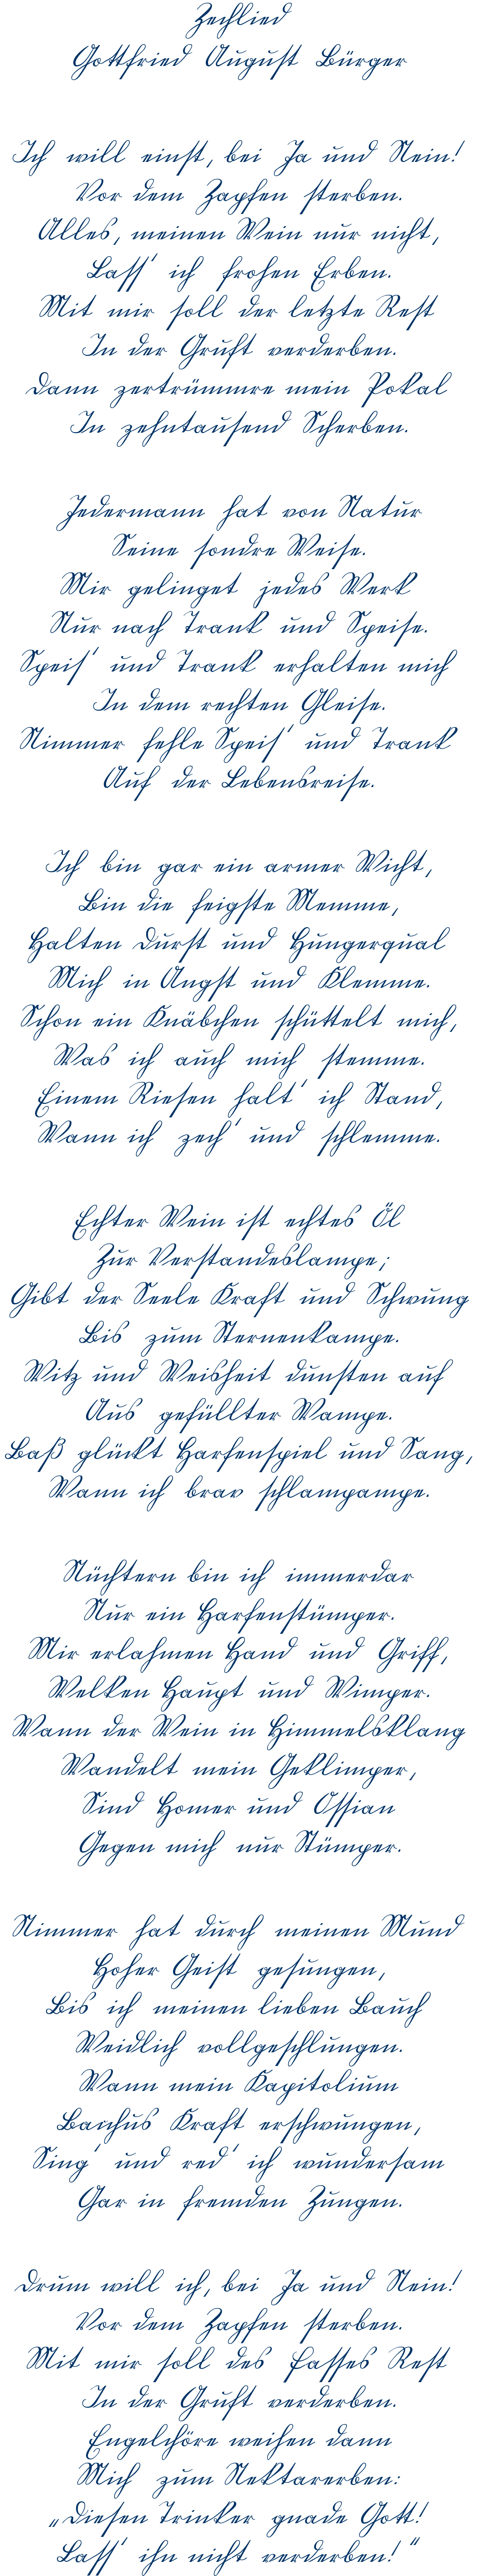 Zechlied
Gottfried August Bürger
Ich will einst, bei Ja und Nein!
Vor dem Zapfen sterben.
Alles, meinen Wein nur nicht,
Lass' ich frohen Erben.
Mit mir soll der letzte Rest
In der Gruft verderben.
Dann zertrümmre mein Pokal
In zehntausend Scherben.
Jedermann hat von Natur
Seine sondre Weise.
Mir gelinget jedes Werk
Nur nach Trank und Speise.
Speis' und Trank erhalten mich
In dem rechten Gleise.
Nimmer fehle Speis' und Trank
Auf der Lebensreise.
Ich bin gar ein armer Wicht,
Bin die feigste Memme,
Halten Durst und Hungerqual
Mich in Angst und Klemme.
Schon ein Knäbchen schüttelt mich,
Was ich auch mich stemme.
Einem Riesen halt' ich Stand,
Wann ich zech' und schlemme.
Echter Wein ist echtes Öl
Zur Verstandeslampe;
Gibt der Seele Kraft und Schwung
Bis zum Sternenkampe.
Witz und Weisheit dunsten auf
Aus gefüllter Wampe.
Baß glückt Harfenspiel und Sang,
Wann ich brav schlampampe.
Nüchtern bin ich immerdar
Nur ein Harfenstümper.
Mir erlahmen Hand und Griff,
Welken Haupt und Wimper.
Wann der Wein in Himmelsklang
Wandelt mein Geklimper,
Sind Homer und Ossian
Gegen mich nur Stümper.
Nimmer hat durch meinen Mund
Hoher Geist gesungen,
Bis ich meinen lieben Bauch
Weidlich vollgeschlungen.
Wann mein Kapitolium
Bacchus Kraft erschwungen,
Sing' und red' ich wundersam
Gar in fremden Zungen.
Drum will ich, bei Ja und Nein!
Vor dem Zapfen sterben.
Mit mir soll des Fasses Rest
In der Gruft verderben.
Engelchöre weihen dann
Mich zum Nektarerben:
„Diesen Trinker gnade Gott!
Lass' ihn nicht verderben!"